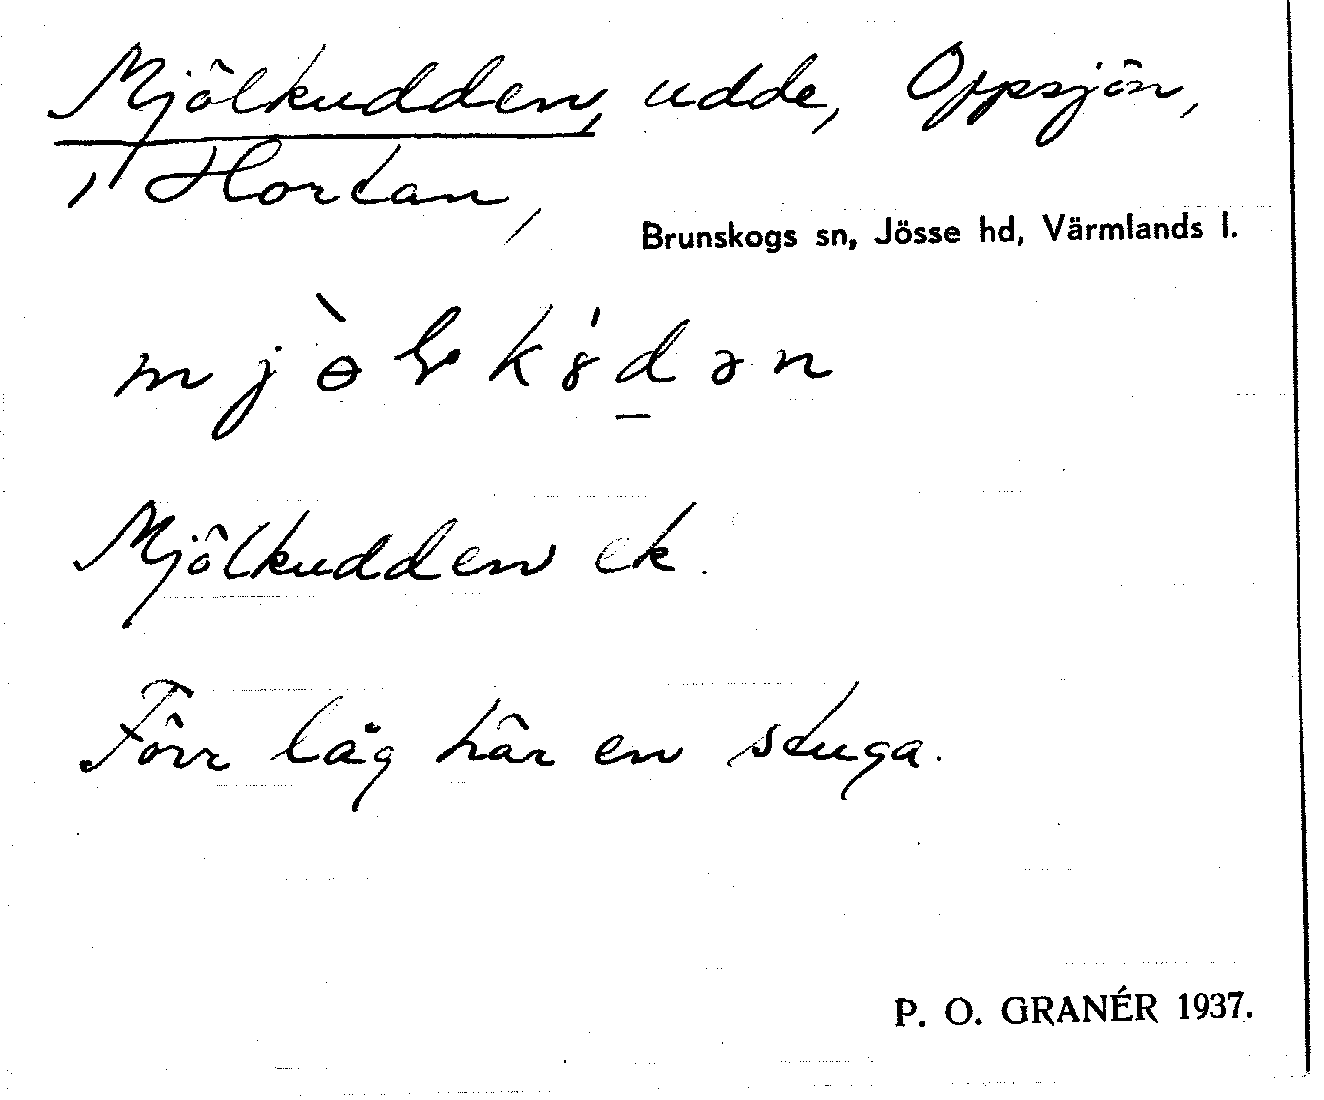 Mjölkudden, udde, Oppsjön,
Hortan,
Brunskogs sn, Jösse hd, Värmlands l.
Mjölkudden ek.
Förr låg här en stuga.
P. O. GRANÉR 1937.